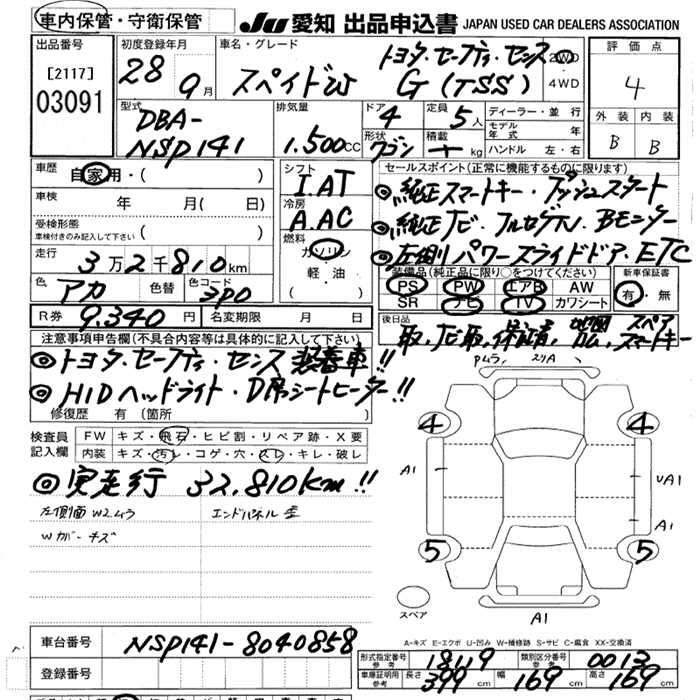 車内保管・守衛保管
JU 愛知 出品申込書 JAPAN USED CAR DEALERS ASSOCIATION
出品番号
[2117]
03091
初度登録年月
28 9月
車名・グレード
トヨタ・セーフティ・センス
スペイドW G (TSS)
2WD
・
4WD
評価点
4
外装 内装
B B
型式
DBA-
NSP141
排気量
1.500cc
ドア 4
形状 ワゴン
定員 5人
積載 kg
ディーラー・並行
モデル年式 年
ハンドル 左・右
車歴
自家用・( )
車検 年 月( 日)
受検形態
車検付きのみ記入して下さい ( )
走行
3万2千810km
色 アカ 色替 色コード 3P0
R券 9.340円 名変期限 月 日
シフト
I.AT
冷房
A.AC
燃料
ガソリン
・
軽・油
( )
セールスポイント(正常に機能するものに限ります)
◎純正スマートキー・プッシュスタート
◎純正ナビ・フルセグTV・Bモニター
◎左側パワースライドドア・ETC
装備品(純正品に限り○をつけてください)
PS PW エアB AW
SR ナビ TV カワシート
新車保証書
有・無
後日品
取, ナビ取, 保証書, スペアスマートキー
注意事項申告欄(不具合内容等は具体的に記入して下さい)
◎トヨタ・セーフティ・センス 装着車!!
◎HIDヘッドライト・D席シートヒーター!!
修復歴 有 (箇所 )
検査員
記入欄
FW キズ・飛石・ヒビ割・リペア跡・X要
内装 キズ・汚レ・コゲ・穴・スレ・キレ・破レ
◎実走行 32,810km!!
左側面W2ムラ エンドパネル歪
Wカバーキズ
Pムラ, 2リA
4 4
A1
UA1
A1
5 5
スペア
A1
A-キズ E-エクボ U-凹み W-補修跡 S-サビ C-腐食 XX-交換済
車台番号 NSP141-8040858
登録番号
形式指定番号
参考
18119
類別区分番号
参考
0013
車庫証明用
参考
長さ 399cm 幅 169cm 高さ 169cm